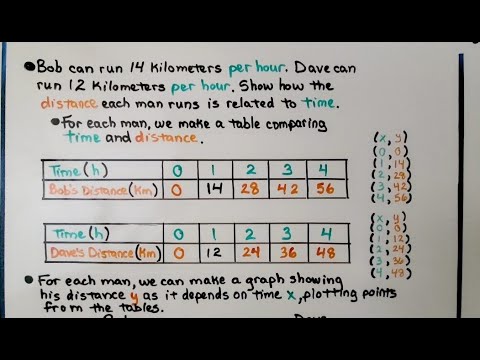 Bob can run 14 Kilometers per hour. Dave can
run 12 Kilometers per hour. Show how the
distance each man runs is related to time.
For each man, we make a table comparing
time and distance.
Time (h) 0 1 2 3 4
Bob's Distance (Km) 0 14 28 42 56
(x, y)
(0, 0)
(1, 14)
(2, 28)
(3, 42)
(4, 56)
Time (h) 0 1 2 3 4
Dave's Distance (Km) 0 12 24 36 48
(x, y)
(0, 0)
(1, 12)
(2, 24)
(3, 36)
(4, 48)
For each man, we can make a graph showing
his distance y as it depends on time x, plotting points
from the tables.